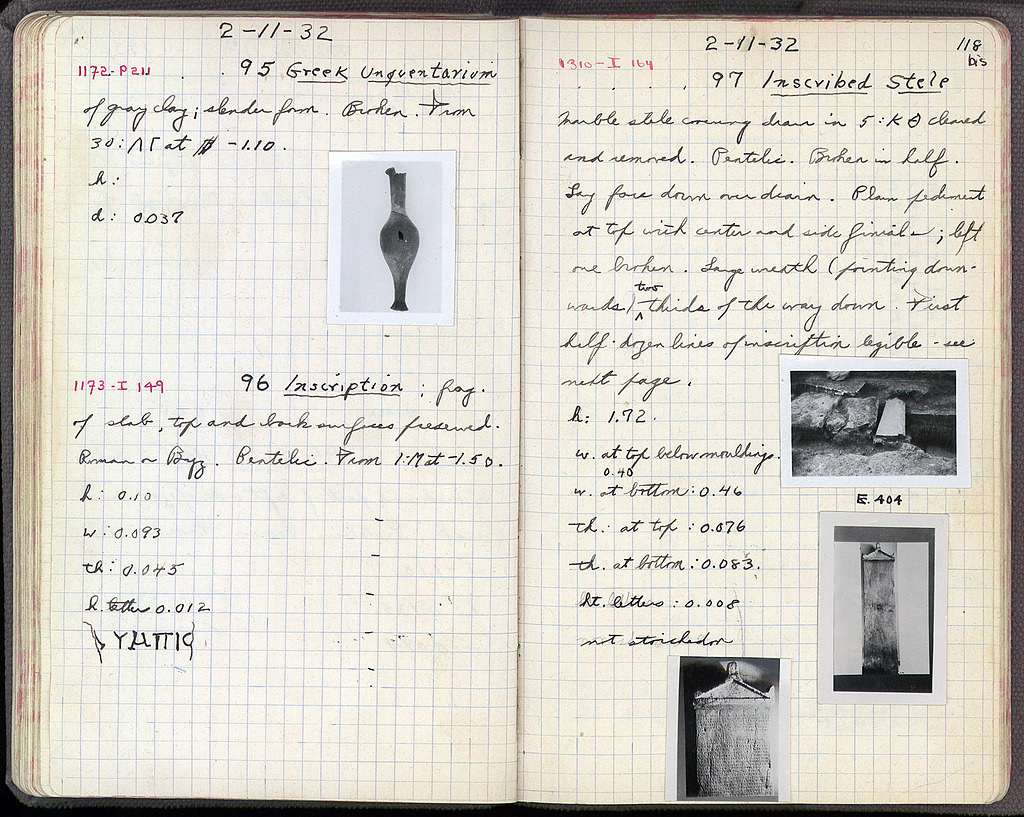 2-11-32
1172-P211 . . 95 Greek Unguentarium
of gray clay; slender form. Broken. From
30:ΛΓ at -1.10.
h:
d: 0.037
1173-I 149 96 Inscription; frag.
of slab, top and back surfaces preserved.
Roman or Byz. Pentelic. From 1:M at -1.50.
h: 0.10
w: 0.093
th: 0.045
h. letters 0.012
ΥΜΠΙΟ
2-11-32 118 bis
1310-I 164
. . . . 97 Inscribed Stele
Marble stele covering drain in 5:ΚΘ cleared
and removed. Pentelic. Broken in half.
Lay face down over drain. Plain pediment
at top with center and side finials; left
one broken. Large wreath (pointing down-
wards) two thirds of the way down. First
half-dozen lines of inscription legible - see
next page.
h: 1.72.
w. at top below mouldings.
0.40
w. at bottom: 0.46
E. 404
th: at top: 0.076
th. at bottom: 0.083.
ht. letters: 0.008
not stoichedon